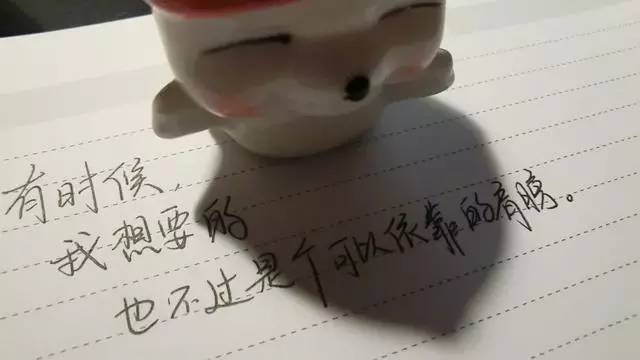 有时候,
我想要的
也不过是个可以依靠的肩膀。